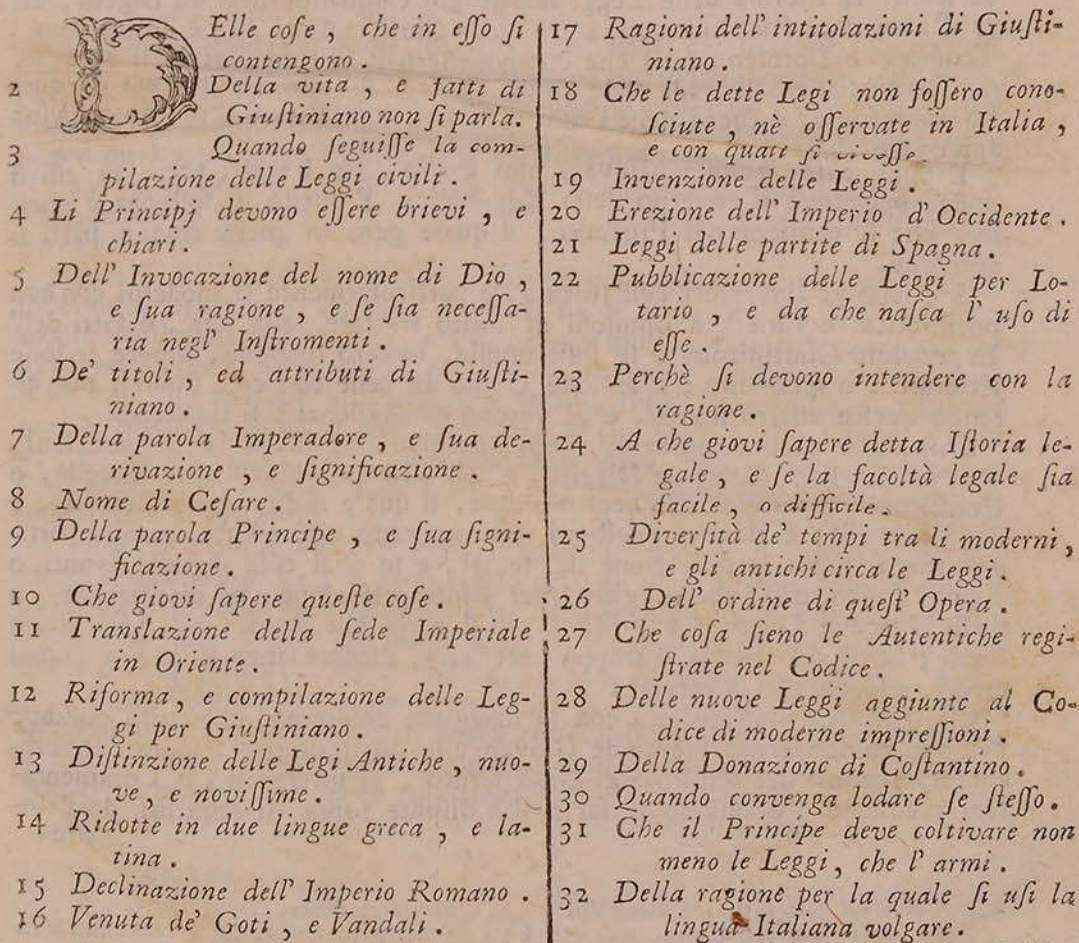 DElle coſe, che in eſſo ſi
contengono.
2 Della vita, e fatti di
Giuſtiniano non ſi parla.
3 Quando ſeguiſſe la com-
pilazione delle Leggi civili.
4 Li Principj devono eſſere brievi, e
chiari.
5 Dell' Invocazione del nome di Dio,
e ſua ragione, e ſe ſia neceſſa-
ria negl' Inſtromenti.
6 De' titoli, ed attributi di Giuſti-
niano.
7 Della parola Imperadore, e ſua de-
rivazione, e ſignificazione.
8 Nome di Ceſare.
9 Della parola Principe, e ſua ſigni-
ficazione.
10 Che giovi ſapere queſte coſe.
11 Translazione della ſede Imperiale
in Oriente.
12 Riforma, e compilazione delle Leg-
gi per Giuſtiniano.
13 Diſtinzione delle Legi Antiche, nuo-
ve, e noviſſime.
14 Ridotte in due lingue greca, e la-
tina.
15 Declinazione dell' Imperio Romano.
16 Venuta de' Goti, e Vandali.
17 Ragioni dell' intitolazioni di Giuſti-
niano.
18 Che le dette Legi non foſſero cono-
ſciute, nè oſſervate in Italia,
e con quali ſi viveſſe.
19 Invenzione delle Leggi.
20 Erezione dell' Imperio d' Occidente.
21 Leggi delle partite di Spagna.
22 Pubblicazione delle Leggi per Lo-
tario, e da che naſca l' uſo di
eſſe.
23 Perchè ſi devono intendere con la
ragione.
24 A che giovi ſapere detta Iſtoria le-
gale, e ſe la facoltà legale ſia
facile, o difficile.
25 Diverſità de' tempi tra li moderni,
e gli antichi circa le Leggi.
26 Dell' ordine di queſt' Opera.
27 Che coſa ſieno le Autentiche regi-
ſtrate nel Codice.
28 Delle nuove Leggi aggiunte al Co-
dice di moderne impreſſioni.
29 Della Donazione di Coſtantino.
30 Quando convenga lodare ſe ſteſſo.
31 Che il Principe deve coltivare non
meno le Leggi, che l' armi.
32 Della ragione per la quale ſi uſi la
lingua Italiana volgare.